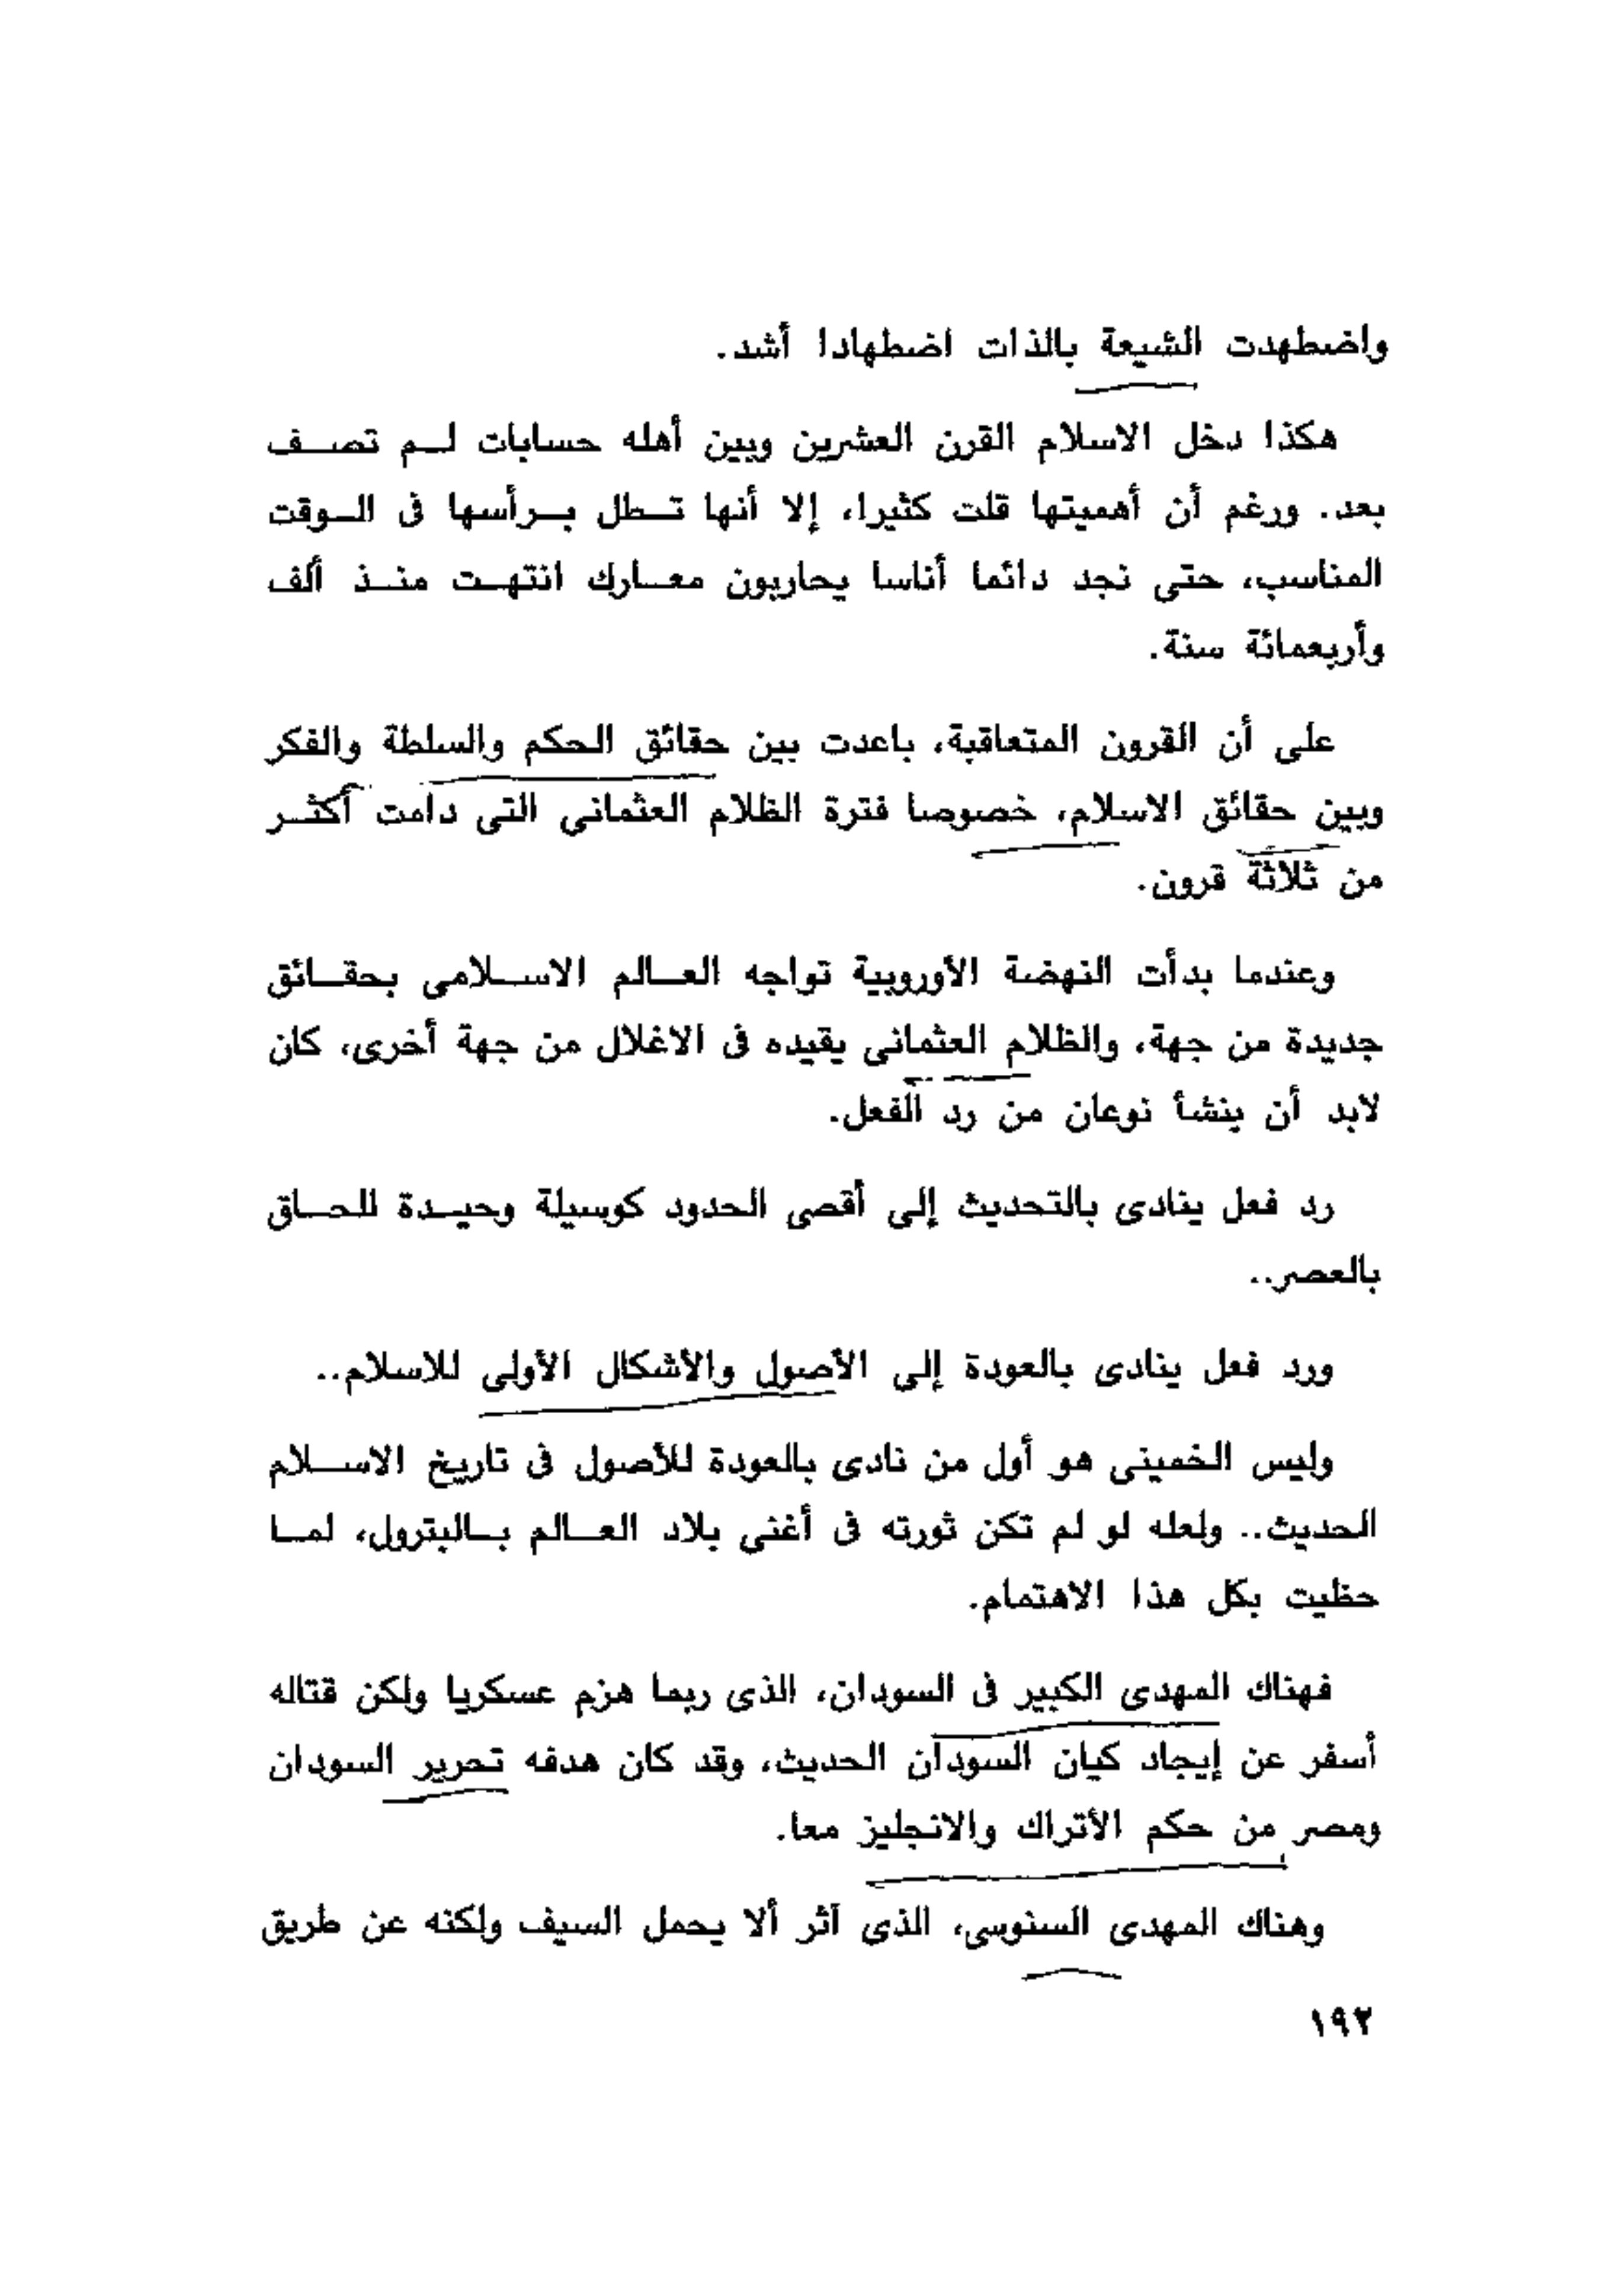 واضطهدت الشيعة بالذات اضطهادا أشد.
هكذا دخل الاسلام القرن العشرين وبين أهله حسابات لـم تصـف
بعد. ورغم أن أهميتها قلت كثيرا، إلا أنها تـطل بـرأسها فى الـوقت
المناسب، حتى نجد دائما أناسا يحاربون معـارك انتهـت منـذ ألف
وأربعمائة سنة.
على أن القرون المتعاقبة، باعدت بين حقائق الحكم والسلطة والفكر
وبين حقائق الاسلام، خصوصا فترة الظلام العثمانى التى دامت أكثـر
من ثلاثة قرون.
وعندما بدأت النهضة الأوروبية تواجه العـالم الاسـلامى بحقـائق
جديدة من جهة، والظلام العثمانى يقيده فى الاغلال من جهة أخرى، كان
لابد أن ينشأ نوعان من رد الفعل.
رد فعل ينادى بالتحديث إلى أقصى الحدود كوسيلة وحيـدة للحـاق
بالعصر..
ورد فعل ينادى بالعودة إلى الأصول والأشكال الأولى للاسلام..
وليس الخمينى هو أول من نادى بالعودة للأصول فى تاريخ الاسـلام
الحديث.. ولعله لو لم تكن ثورته فى أغنى بلاد العـالم بـالبترول، لمـا
حظيت بكل هذا الاهتمام.
فهناك المهدى الكبير فى السودان، الذى ربما هزم عسكريا ولكن قتاله
أسفر عن إيجاد كيان السودان الحديث، وقد كان هدفه تحرير السودان
ومصر من حكم الأتراك والانجليز معا.
وهناك المهدى السنوسى، الذى آثر ألا يحمل السيف ولكنه عن طريق
١٩٢